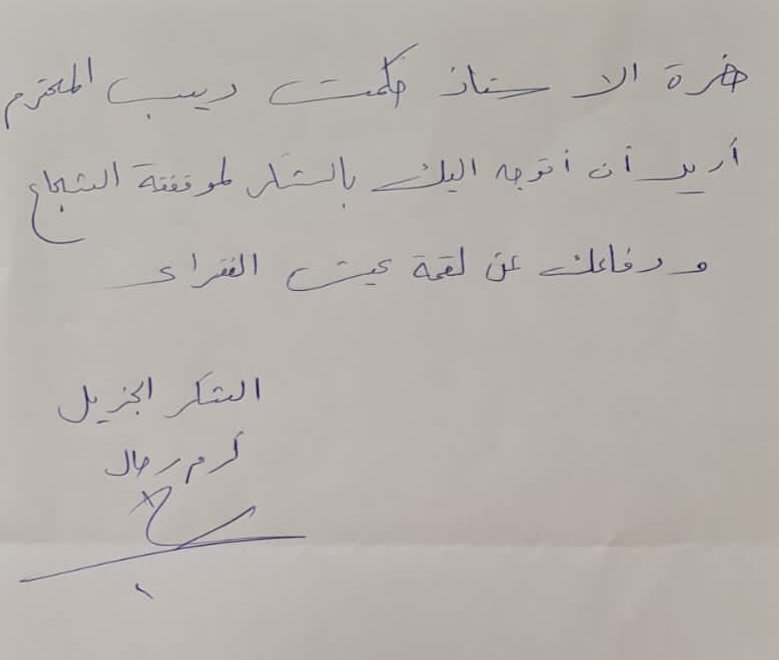 حضرة الاستاذ حكمت ديب المحترم
أريد أن أتوجه اليك بالشكر لموقفة الشجاع
ودفاعك عن لقمة عيش الفقراء
الشكر الجزيل
كرم رحال